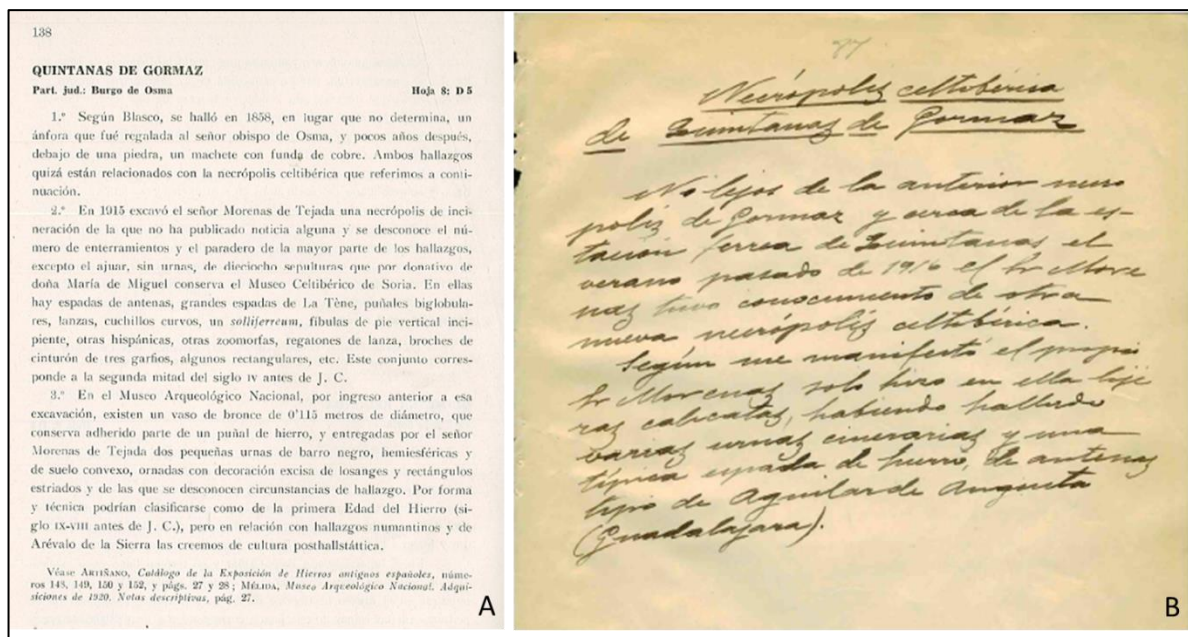 138
QUINTANAS DE GORMAZ
Part. jud.: Burgo de Osma Hoja 8: D 5
1.º Según Blasco, se halló en 1858, en lugar que no determina, un
ánfora que fué regalada al señor obispo de Osma, y pocos años después,
debajo de una piedra, un machete con funda de cobre. Ambos hallazgos
quizá están relacionados con la necrópolis celtibérica que referimos a conti-
nuación.
2.º En 1915 excavó el señor Morenas de Tejada una necrópolis de inci-
neración de la que no ha publicado noticia alguna y se desconoce el nú-
mero de enterramientos y el paradero de la mayor parte de los hallazgos,
excepto el ajuar, sin urnas, de dieciocho sepulturas que por donativo de
doña María de Miguel conserva el Museo Celtibérico de Soria. En ellas
hay espadas de antenas, grandes espadas de La Tène, puñales biglobula-
res, lanzas, cuchillos curvos, un solliferreum, fíbulas de pie vertical inci-
piente, otras hispánicas, otras zoomorfas, regatones de lanza, broches de
cinturón de tres garfios, algunos rectangulares, etc. Este conjunto corres-
ponde a la segunda mitad del siglo IV antes de J. C.
3.º En el Museo Arqueológico Nacional, por ingreso anterior a esa
excavación, existen un vaso de bronce de 0'115 metros de diámetro, que
conserva adherido parte de un puñal de hierro, y entregadas por el señor
Morenas de Tejada dos pequeñas urnas de barro negro, hemiesféricas y
de suelo convexo, ornadas con decoración excisa de losanges y rectángulos
estriados y de las que se desconocen circunstancias de hallazgo. Por forma
y técnica podrían clasificarse como de la primera Edad del Hierro (si-
glo IX-VIII antes de J. C.), pero en relación con hallazgos numantinos y de
Arévalo de la Sierra las creemos de cultura posthallstáttica.
Véase ARTIÑANO, Catálogo de la Exposición de Hierros antiguos españoles, núme-
ros 148, 149, 150 y 152, y págs. 27 y 28; MÉLIDA, Museo Arqueológico Nacional. Adqui-
siciones de 1920. Notas descriptivas, pág. 27.
A
Necrópolis celtibérica
de Quintanas de Gormaz
No lejos de la anterior necro
polis de Gormaz y cerca de la es-
tación ferrea de Quintanas el
verano pasado de 1916 el Sr More
nas tuvo conocimiento de otra
nueva necrópolis celtibérica.
Según me manifestó el propio
Sr Morenas solo hizo en ella lije
ras calicatas, habiendo hallado
varias urnas cinerarias y una
típica espada de hierro, de antenas
tipo de Aguilar de Anguita
(Guadalajara).
B